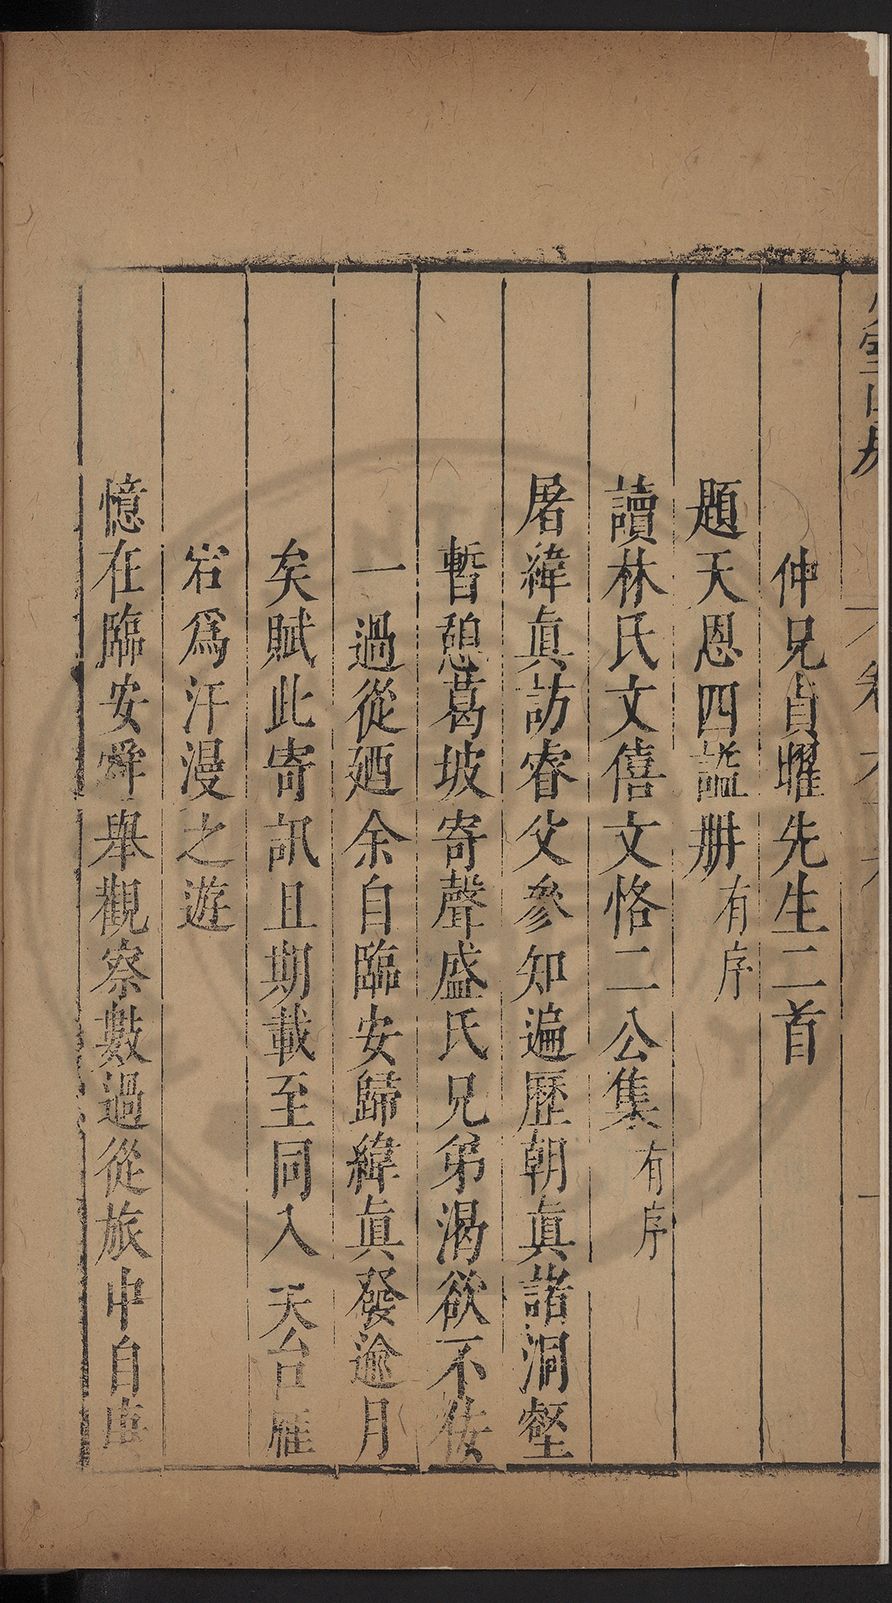 室山房
仲兄貞曜先生二首
題天恩四謚册有序
讀林氏文僖文恪二公集有序
屠緯眞訪睿父參知遍歷朝眞諸洞壑
暫憩葛坡寄聲盛氏兄弟渴欲不佞
一過從廼余自臨安歸緯眞發逾月
矣賦此寄訊且期載至同入天台雁
宕爲汗漫之遊
憶在臨安舜舉觀察數過從旅中自